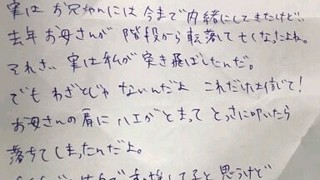 実はお兄ちゃんには今まで内緒にしてきたけど、
去年お母さんが階段から転落して亡くなったよね。
それさ、実は私が突き飛ばしたんだ。
でもわざとじゃないんだよ これだけは信じて!
お母さんの肩にハエがとまって とっさに叩いたら
落ちてしまったんだよ。